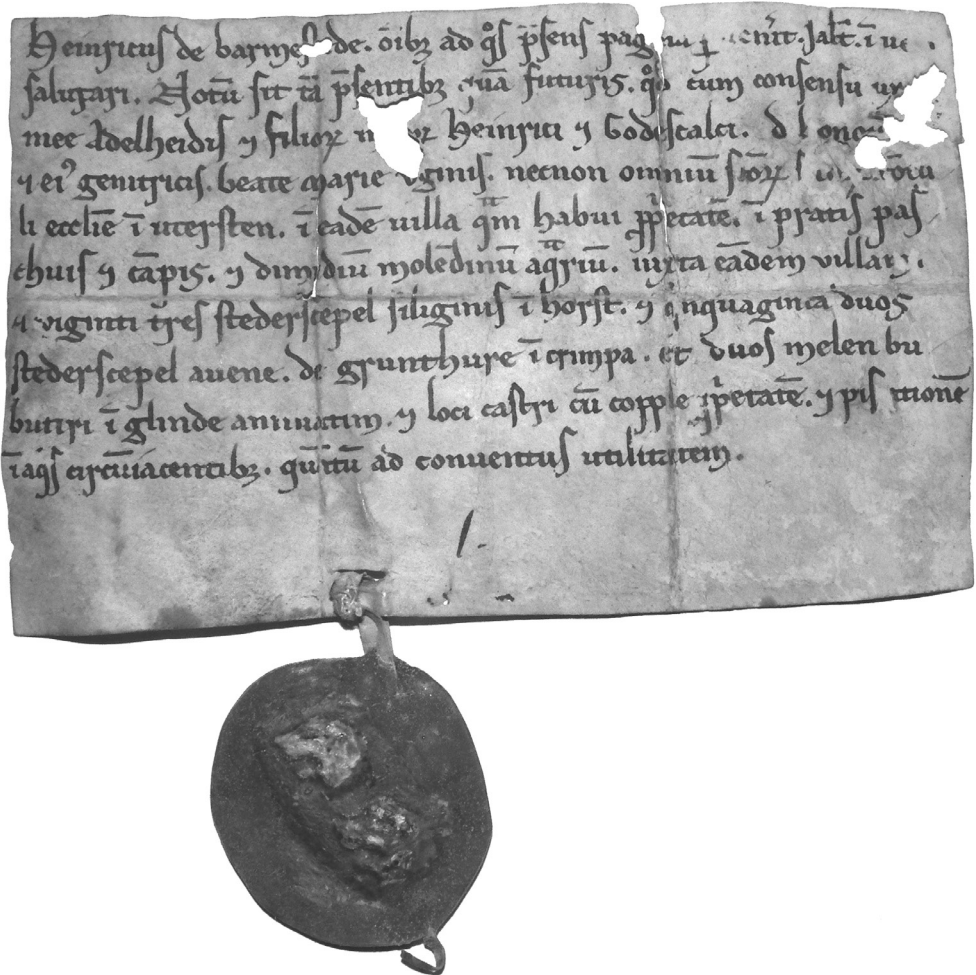 Heinricus de barmes de. oībꝫ ad qͦs p̄sens pag ꝑ uenit. salt̄. ī
salutari. Notū sit tā p̄sentibꝫ quā futuris. qͦd cum consensu
mee Adelheidis ⁊ filioꝝ meoꝝ Heinrici ⁊ Godescalci.
⁊ ei⁹ genitricis. beate Marie uginis. necnon omniū sc̄oꝝ
li eccl̄ie ī utersten. ī eadē uilla qͣm habui ꝓp̍etatē. ī pratis pas
chuis ⁊ cāpis. ⁊ dimidiū molēdinū aqͣriū. iuxta eādem villam.
⁊ viginti tres stederscepel siliginis ī horst. ⁊ qͥnquaginta duos
stederscepel auene. de grunthure ī crimpa. et duos melen bu
butiri ī glinde annuatim. ⁊ loci castri cū copple ꝓp̍etatē. ⁊ pis tionē
ī aqͥs circūiacentibꝫ. quītū ad conuentus utilitatem.